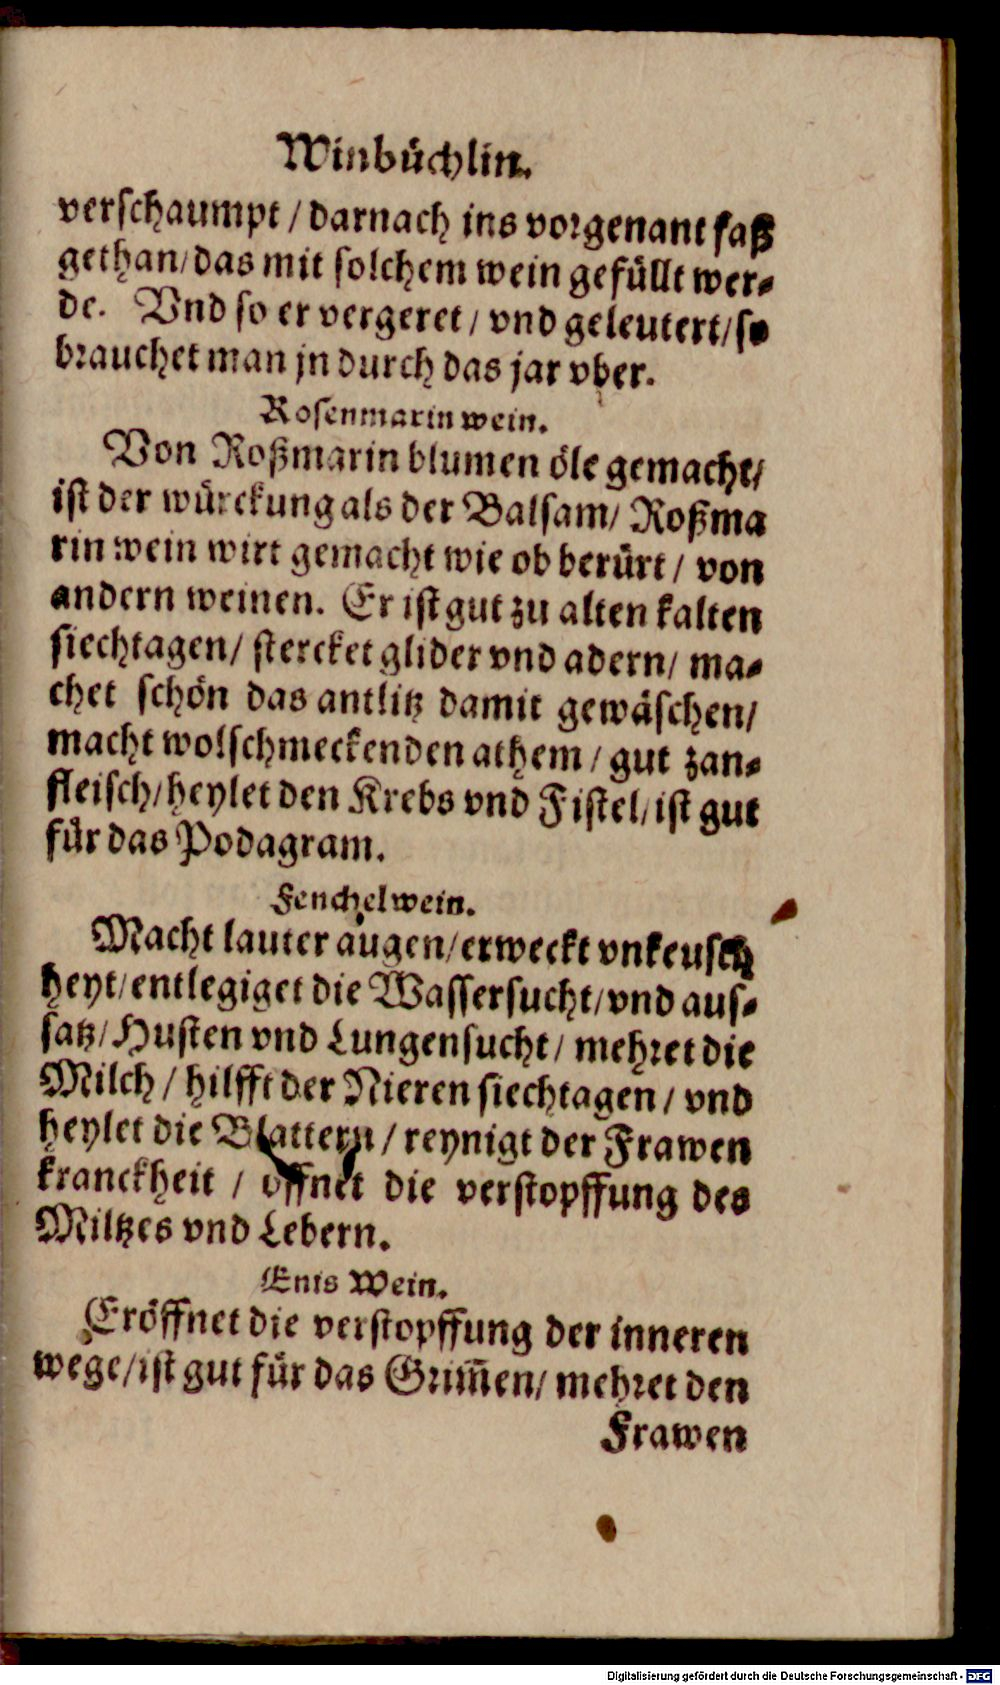 Winbüchlin.
verschaumpt / darnach ins vorgenant faß
gethan/das mit solchem wein gefüllt wer-
de. Vnd so er vergeret / vnd geleutert/so
brauchet man jn durch das jar vber.
Rosenmarin wein.
Von Roßmarin blumen öle gemacht/
ist der würckung als der Balsam/ Roßma
rin wein wirt gemacht wie ob berürt / von
andern weinen. Er ist gut zu alten kalten
siechtagen/ stercket glider vnd adern/ ma-
chet schön das antlitz damit gewäschen/
macht wolschmeckenden athem / gut zan-
fleisch/heylet den Krebs vnd Fistel/ist gut
für das Podagram.
Fenchelwein.
Macht lauter augen/erweckt vnkeusch
heyt/entlegiget die Wassersucht/vnd aus-
satz/Husten vnd Lungensucht/ mehret die
Milch / hilfft der Nieren siechtagen / vnd
heylet die Blattern / reynigt der Frawen
kranckheit / öffnet die verstopffung des
Miltzes vnd Lebern.
Enis Wein.
Eröffnet die verstopffung der inneren
wege/ist gut für das Grim̃en/ mehret den
Frawen
Digitalisierung gefördert durch die Deutsche Forschungsgemeinschaft - DFG